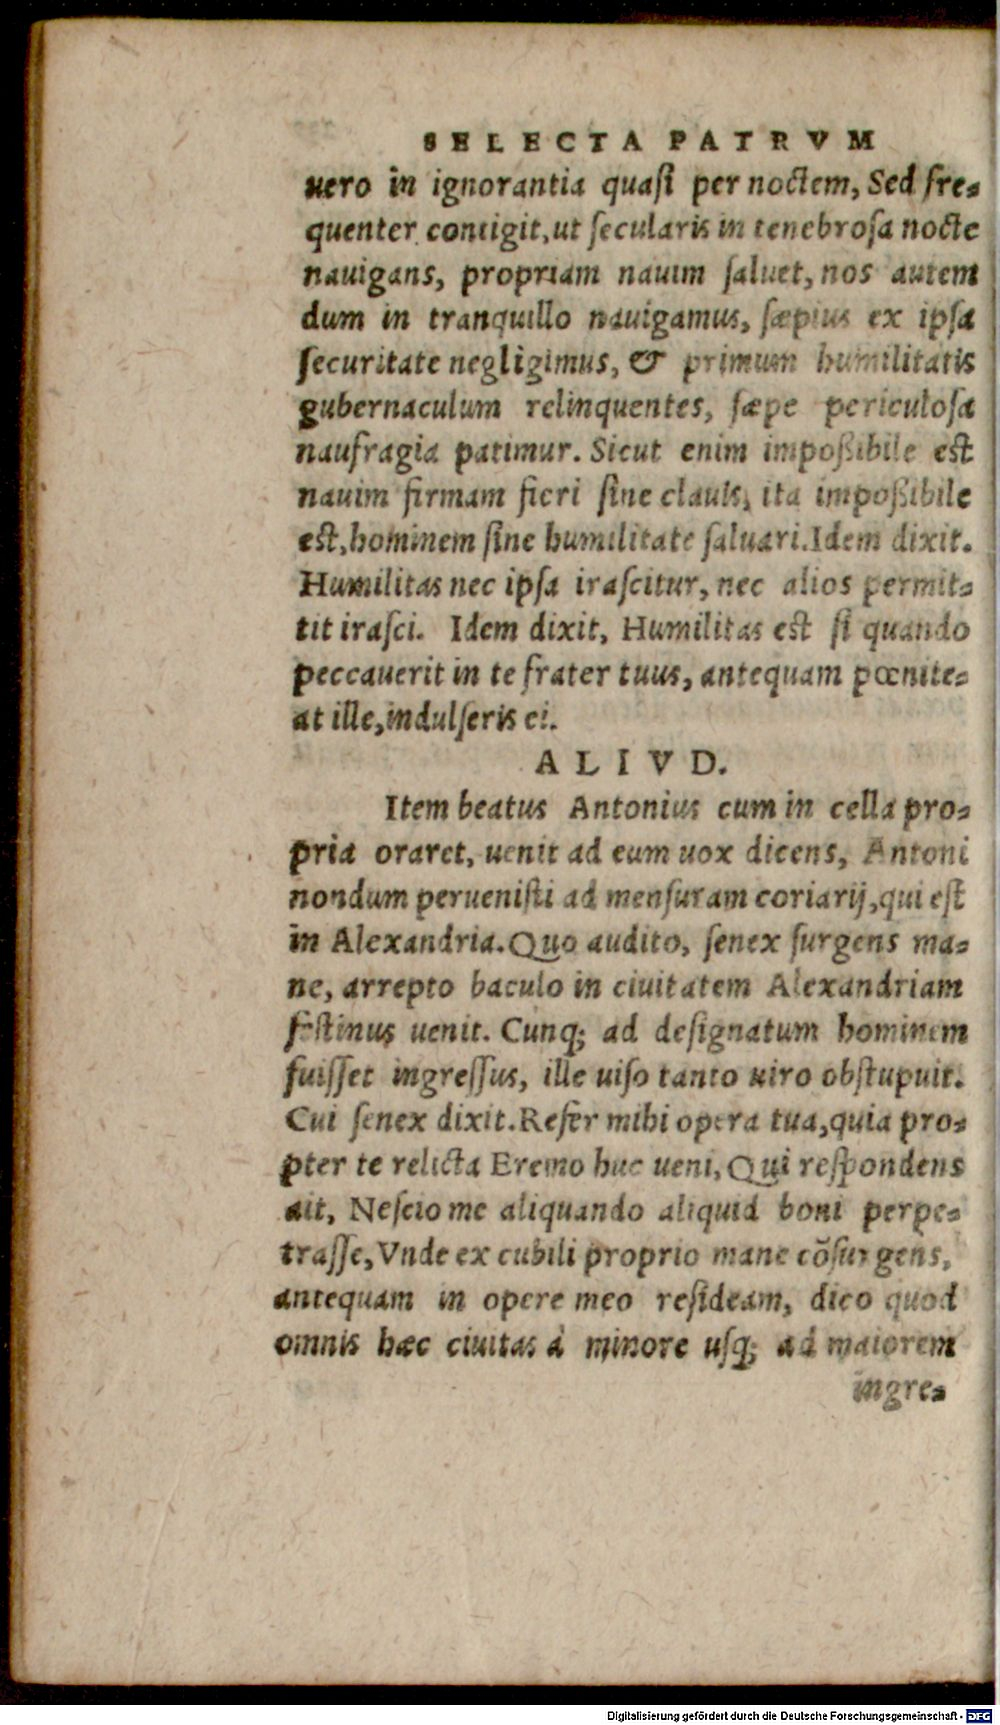 SELECTA PATRVM
uero in ignorantia quasi per noctem, Sed fre-
quenter contigit, ut secularis in tenebrosa nocte
nauigans, propriam nauim saluet, nos autem
dum in tranquillo nauigamus, sæpius ex ipsa
securitate negligimus, & primum humilitatis
gubernaculum relinquentes, sæpe periculosa
naufragia patimur. Sicut enim impoßibile est
nauim firmam fieri sine clauis, ita impoßibile
est, hominem sine humilitate saluari. Idem dixit.
Humilitas nec ipsa irascitur, nec alios permit-
tit irasci. Idem dixit, Humilitas est si quando
peccauerit in te frater tuus, antequam pœnite-
at ille, indulseris ei.
ALIVD.
Item beatus Antonius cum in cella pro-
pria oraret, uenit ad eum uox dicens, Antoni
nondum peruenisti ad mensuram coriarij, qui est
in Alexandria. Quo audito, senex surgens ma-
ne, arrepto baculo in ciuitatem Alexandriam
festinus uenit. Cunq; ad designatum hominem
fuisset ingressus, ille uiso tanto uiro obstupuit.
Cui senex dixit. Refer mihi opera tua, quia pro-
pter te relicta Eremo huc ueni, Qui respondens
ait, Nescio me aliquando aliquid boni perpe-
trasse, Vnde ex cubili proprio mane cõsurgens,
antequam in opere meo resideam, dico quod
omnis hæc ciuitas à minore usq; ad maiorem
ingre-
Digitalisierung gefördert durch die Deutsche Forschungsgemeinschaft - DFG